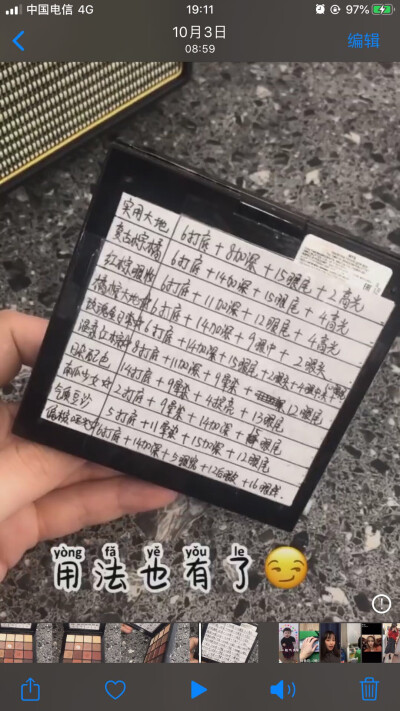 中国电信 4G 19:11 97%
10月3日
08:59
编辑
实用大地 6打底+8加深+15眼尾+2高光
复古棕橘 6打底+14加深+15眼尾+4高光
红棕眼妆 6打底+11加深+12眼尾+4高光
橘棕大地 6打底+14加深+9眼中+2眼头
玫瑰 6打底+14加深+15眼尾+2眼头+4眼中
温柔 8打底+11加深+9晕染+12眼尾
日常配色 14打底+9晕染+4提亮+13眼尾
南瓜少女 2打底+9晕染+14加深+眼尾
气质豆沙 5打底+11晕染+15加深+12眼尾
偏橘 6打底+14加深+5眼窝+12+16眼线
yòng fǎ yě yǒu le
用法也有了